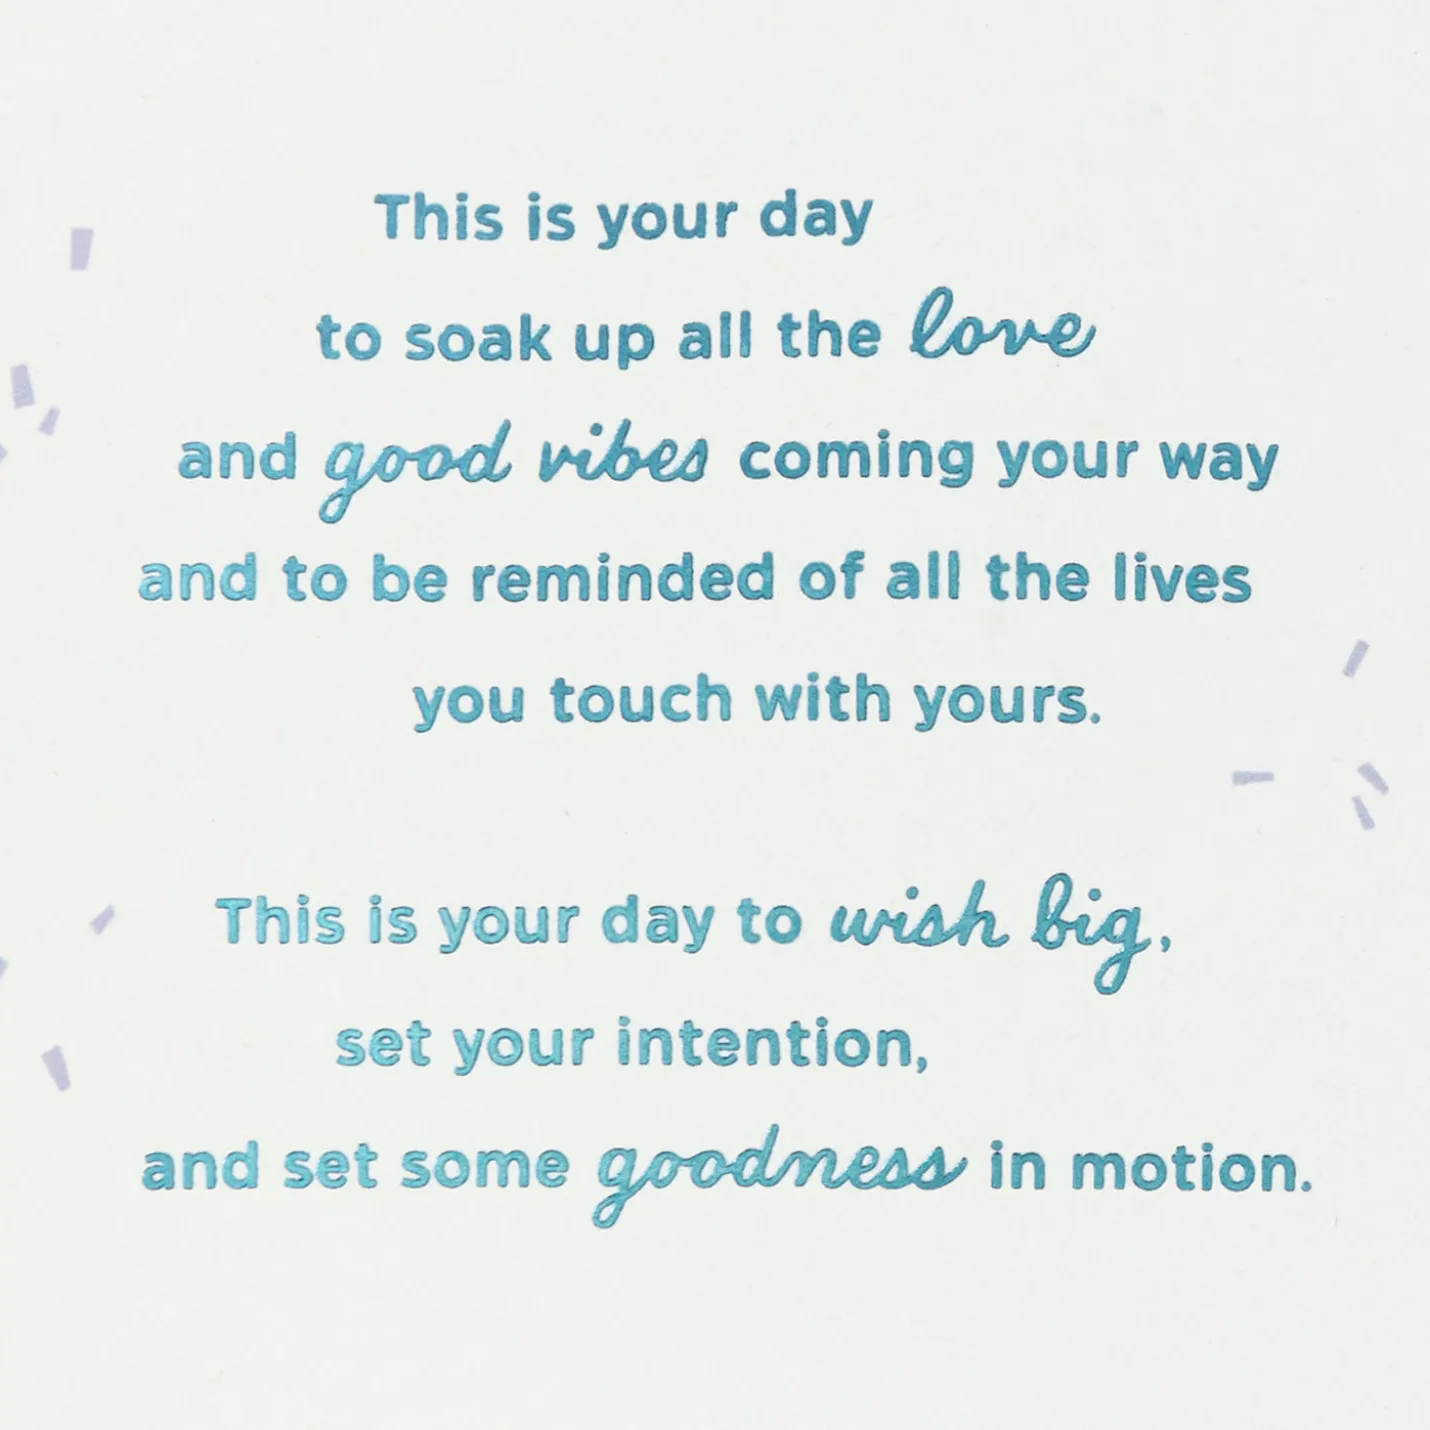 This is your day
to soak up all the love
and good vibes coming your way
and to be reminded of all the lives
you touch with yours.
This is your day to wish big,
set your intention,
and set some goodness in motion.